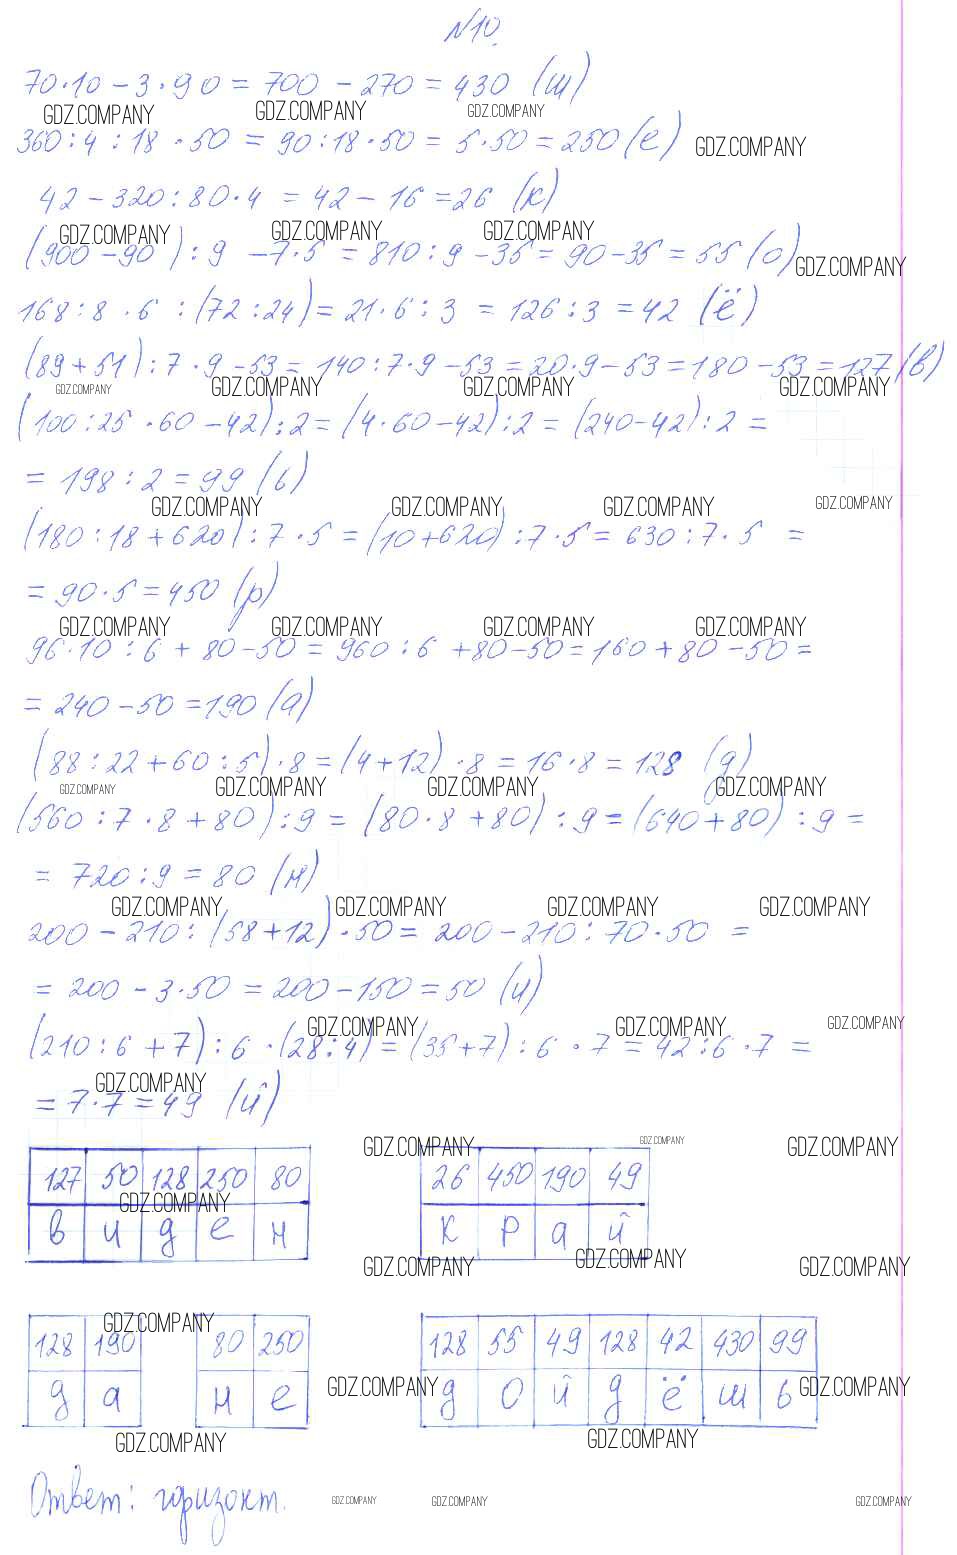 №10.
70·10 – 3·90 = 700 – 270 = 430 (ш)
GDZ.COMPANY GDZ.COMPANY GDZ.COMPANY
360 : 4 : 18 · 50 = 90 : 18 · 50 = 5·50 = 250 (е) GDZ.COMPANY
42 – 320 : 80·4 = 42 – 16 = 26 (к)
GDZ.COMPANY GDZ.COMPANY GDZ.COMPANY
(900 – 90) : 9 – 7·5 = 810 : 9 – 35 = 90 – 35 = 55 (о) GDZ.COMPANY
168 : 8 · 6 : (72 : 24) = 21·6 : 3 = 126 : 3 = 42 (ё)
(89 + 51) : 7 · 9 – 53 = 140 : 7·9 – 53 = 20·9 – 53 = 180 – 53 = 127 (в)
GDZ.COMPANY GDZ.COMPANY GDZ.COMPANY GDZ.COMPANY
(100 : 25 · 60 – 42) : 2 = (4·60 – 42) : 2 = (240 – 42) : 2 =
= 198 : 2 = 99 (ь)
GDZ.COMPANY GDZ.COMPANY GDZ.COMPANY GDZ.COMPANY
(180 : 18 + 620) : 7 · 5 = (10 + 620) : 7·5 = 630 : 7· 5 =
= 90·5 = 450 (р)
GDZ.COMPANY GDZ.COMPANY GDZ.COMPANY GDZ.COMPANY
96·10 : 6 + 80 – 50 = 960 : 6 + 80 – 50 = 160 + 80 – 50 =
= 240 – 50 = 190 (а)
(88 : 22 + 60 : 5) · 8 = (4 + 12) · 8 = 16·8 = 128 (д)
GDZ.COMPANY GDZ.COMPANY GDZ.COMPANY GDZ.COMPANY
(560 : 7 · 8 + 80) : 9 = (80·8 + 80) : 9 = (640 + 80) : 9 =
= 720 : 9 = 80 (н)
GDZ.COMPANY GDZ.COMPANY GDZ.COMPANY GDZ.COMPANY
200 – 210 : (58 + 12) · 50 = 200 – 210 : 70·50 =
= 200 – 3·50 = 200 – 150 = 50 (и)
GDZ.COMPANY GDZ.COMPANY GDZ.COMPANY
(210 : 6 + 7) : 6 · (28 : 4) = (35 + 7) : 6 · 7 = 42 : 6 ·7 =
GDZ.COMPANY
= 7·7 = 49 (й)
GDZ.COMPANY GDZ.COMPANY GDZ.COMPANY
127 50 128 250 80 26 450 190 49
GDZ.COMPANY
в и д е н к р а й
GDZ.COMPANY GDZ.COMPANY GDZ.COMPANY
GDZ.COMPANY
128 190 80 250 128 55 49 128 42 430 99
GDZ.COMPANY GDZ.COMPANY
д а н е д о й д ё ш ь
GDZ.COMPANY GDZ.COMPANY
Ответ: горизонт.
GDZ.COMPANY GDZ.COMPANY GDZ.COMPANY